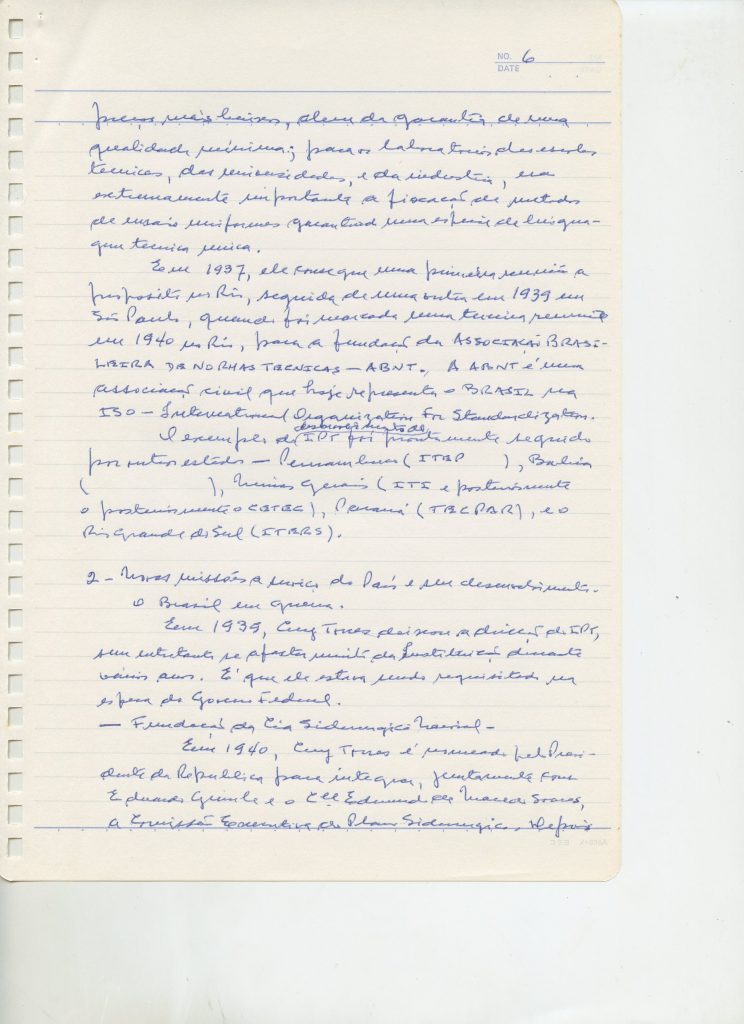 NO. 6
DATE
preços mais baixos, alem da garantia de uma
qualidade minima; para os laboratorios das escolas
tecnicas, das universidades, e da industria, era
extremamente importante a fixação de metodos
de ensaio uniformes garantindo uma especie de lingua-
gem tecnica unica.
Em 1937, ele consegue uma primeira reunião a
proposito no Rio, seguida de uma outra em 1939 em
São Paulo, quando foi marcada uma terceira reunião
em 1940 no Rio, para a fundação da ASSOCIAÇÃO BRASI-
LEIRA DE NORMAS TECNICAS - ABNT. A ABNT é uma
associação civil que hoje representa o BRASIL na
ISO - International Organization for Standardization.
desenvolvimento do
O exemplo do IPT foi prontamente seguido
por outros estados - Pernambuco (ITEP ), Bahia
( ), Minas Gerais (ITI e posteriormente
o posteriormente o CETEC), Paraná (TECPAR), e o
Rio Grande do Sul (ITERS).
2 - Novas missões a serviço do País e seu desenvolvimento.
O Brasil em guerra.
Em 1939, Ary Torres deixou a direção do IPT,
sem entretanto se afastar muito da Instituição durante
vários anos. É que ele estava sendo requisitado na
esfera do Governo Federal.
- Fundação da Cia Siderurgica Nacional -
Em 1940, Ary Torres é nomeado pelo Presi-
dente da Republica para integrar, juntamente com
Eduardo Guinle e o Cel Edmundo de Macedo Soares,
a Comissão Executiva do Plano Siderurgico. Depois